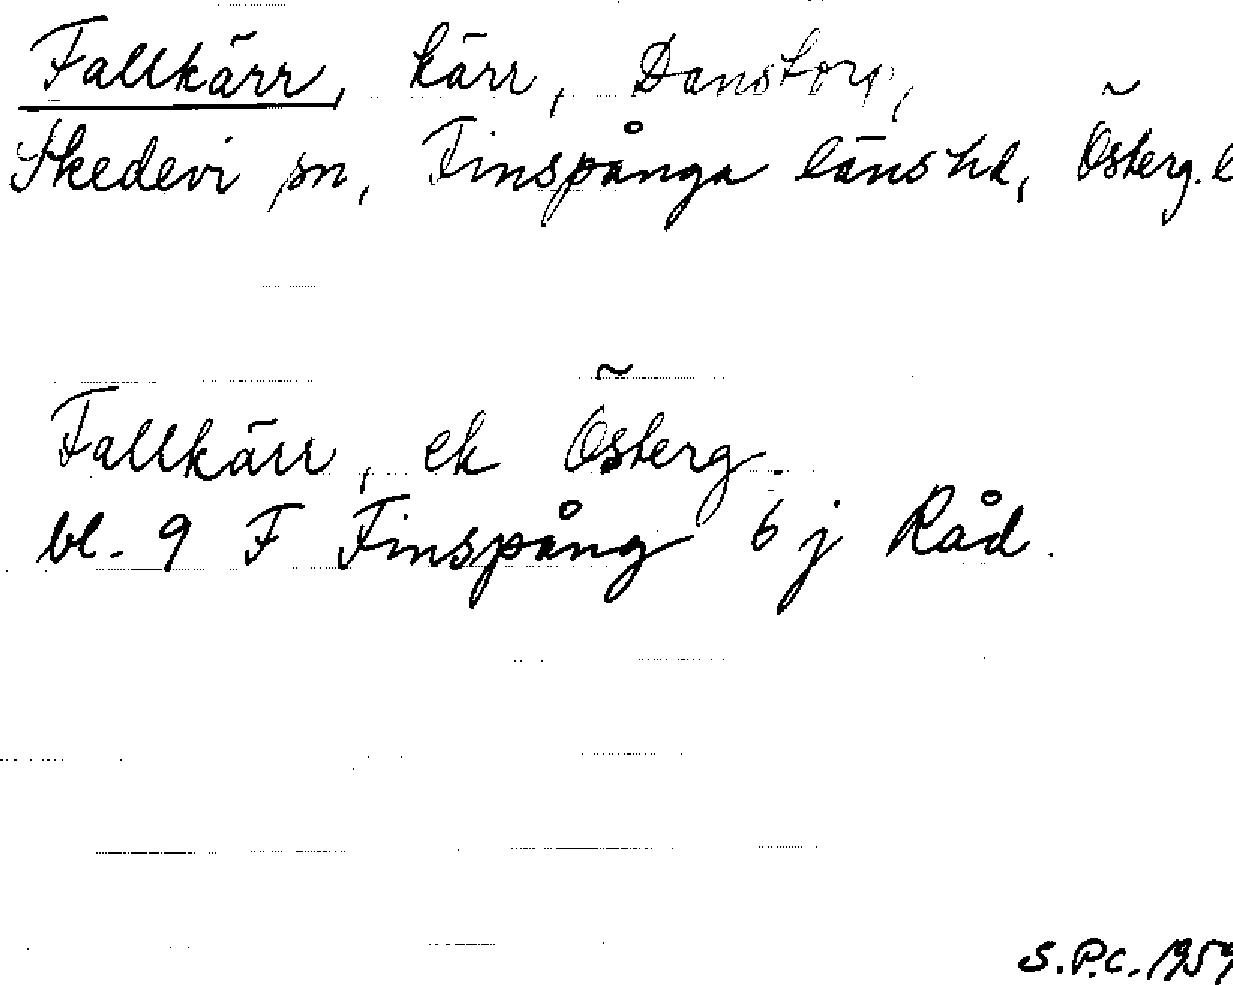 Fallkärr, kärr, Danstorp,
Skedevi sn, Finspånga läns hd, Österg. l
Fallkärr, ek Österg.
bl. 9 F Finspång 6 j Råd.
S.P.C. 1959